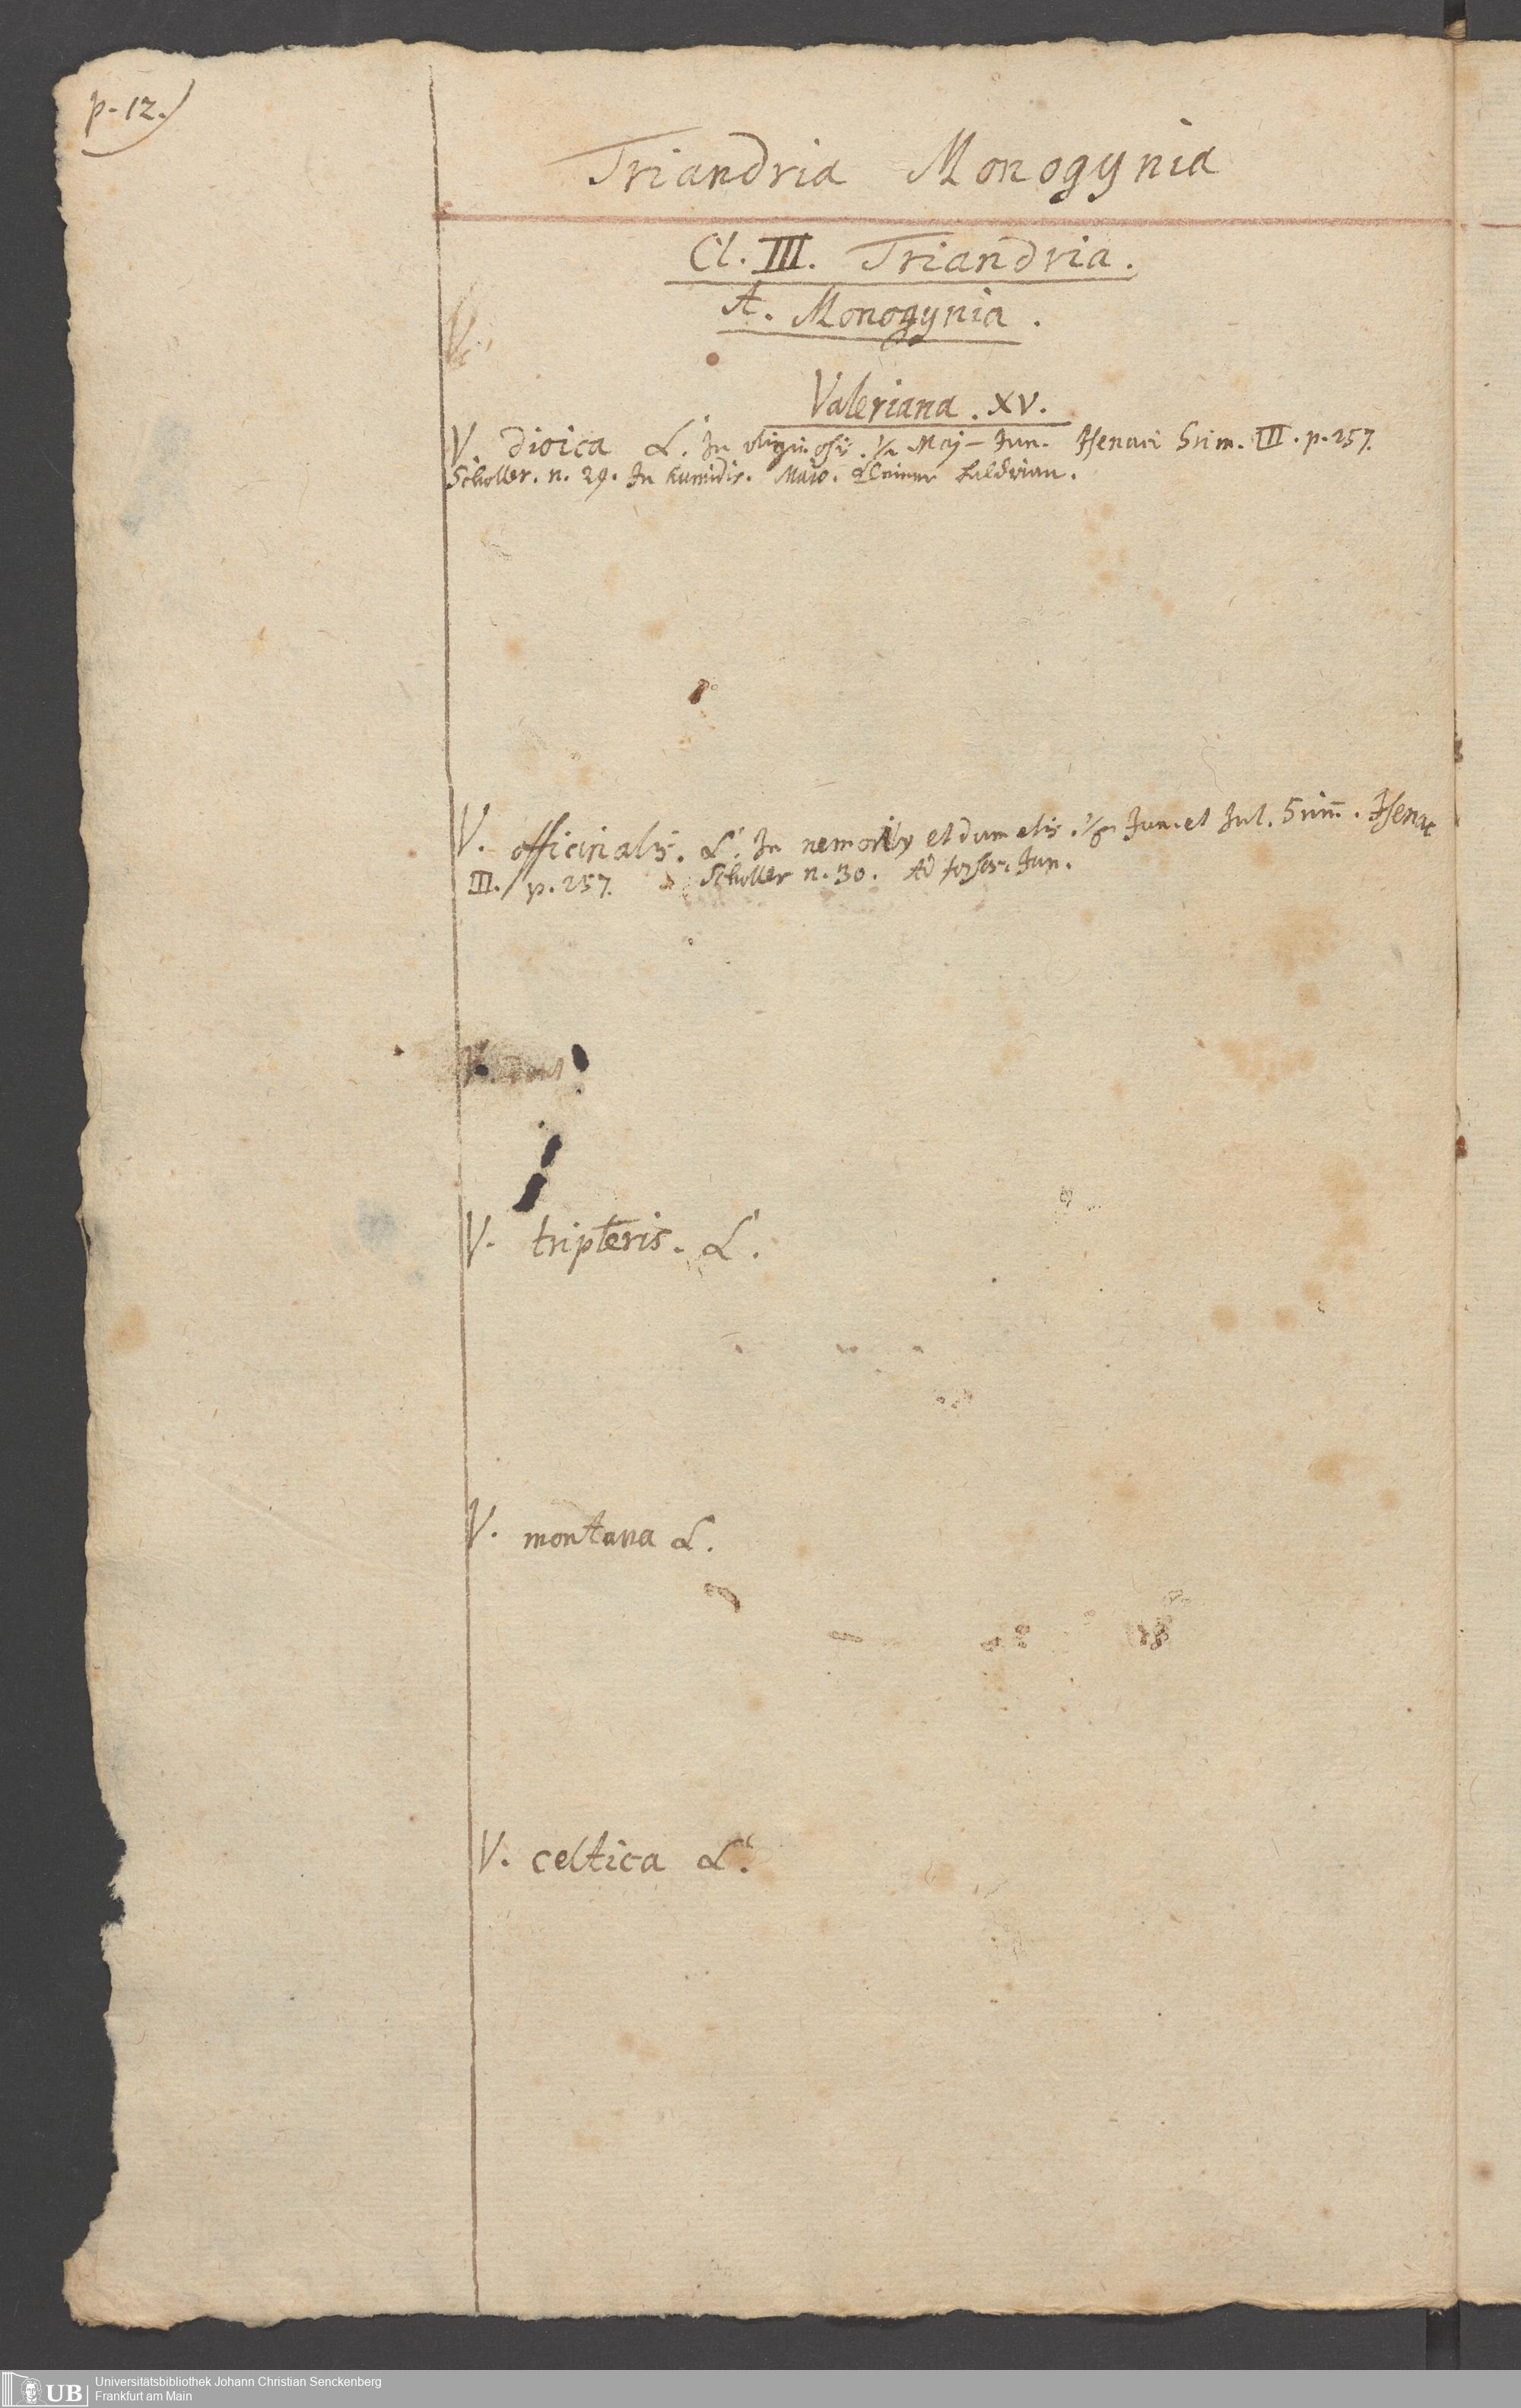 p. 12.)
Triandria Monogynia
Cl. III. Triandria.
A. Monogynia.
Valeriana. XV.
V. dioica L. In uliginosis. Maj – Jun. Isenaci Sũm. III. p. 257.
Scholler. n. 29. In humidis. Maio. Kleiner Baldrian.
V. officinalis. L. In nemorib9 et dumetis. Jun. et Jul. Sum̄. Isenac
III. p. 257. Scholler n. 30. Ad fossas. Jun.
V. tripteris. L.
V. montana L.
V. celtica L.
UB
Universitätsbibliothek Johann Christian Senckenberg
Frankfurt am Main